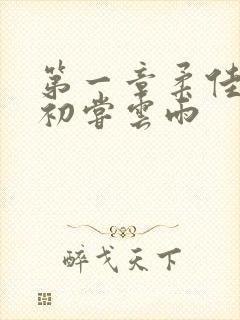 第一章柔佳
初嘗雲雨
醉戈天下